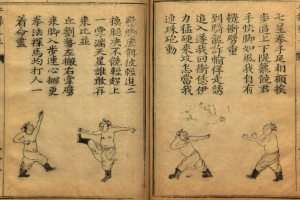 七星拳手足相顧挨
步逼上下隄籠饒君
手快脚如風我自有
攪衝劈重
倒騎龍詐輸佯走誘
追入遂我回衝恁伊
力猛硬來攻怎當我
連珠砲動
懸脚虛餌彼輕進二
換腿决不饒輕趕上
一掌滿天星誰敢再
來比並
丘劉勢左搬右掌劈
來脚入步連心挪更
拳法探馬均打人一
着命盡